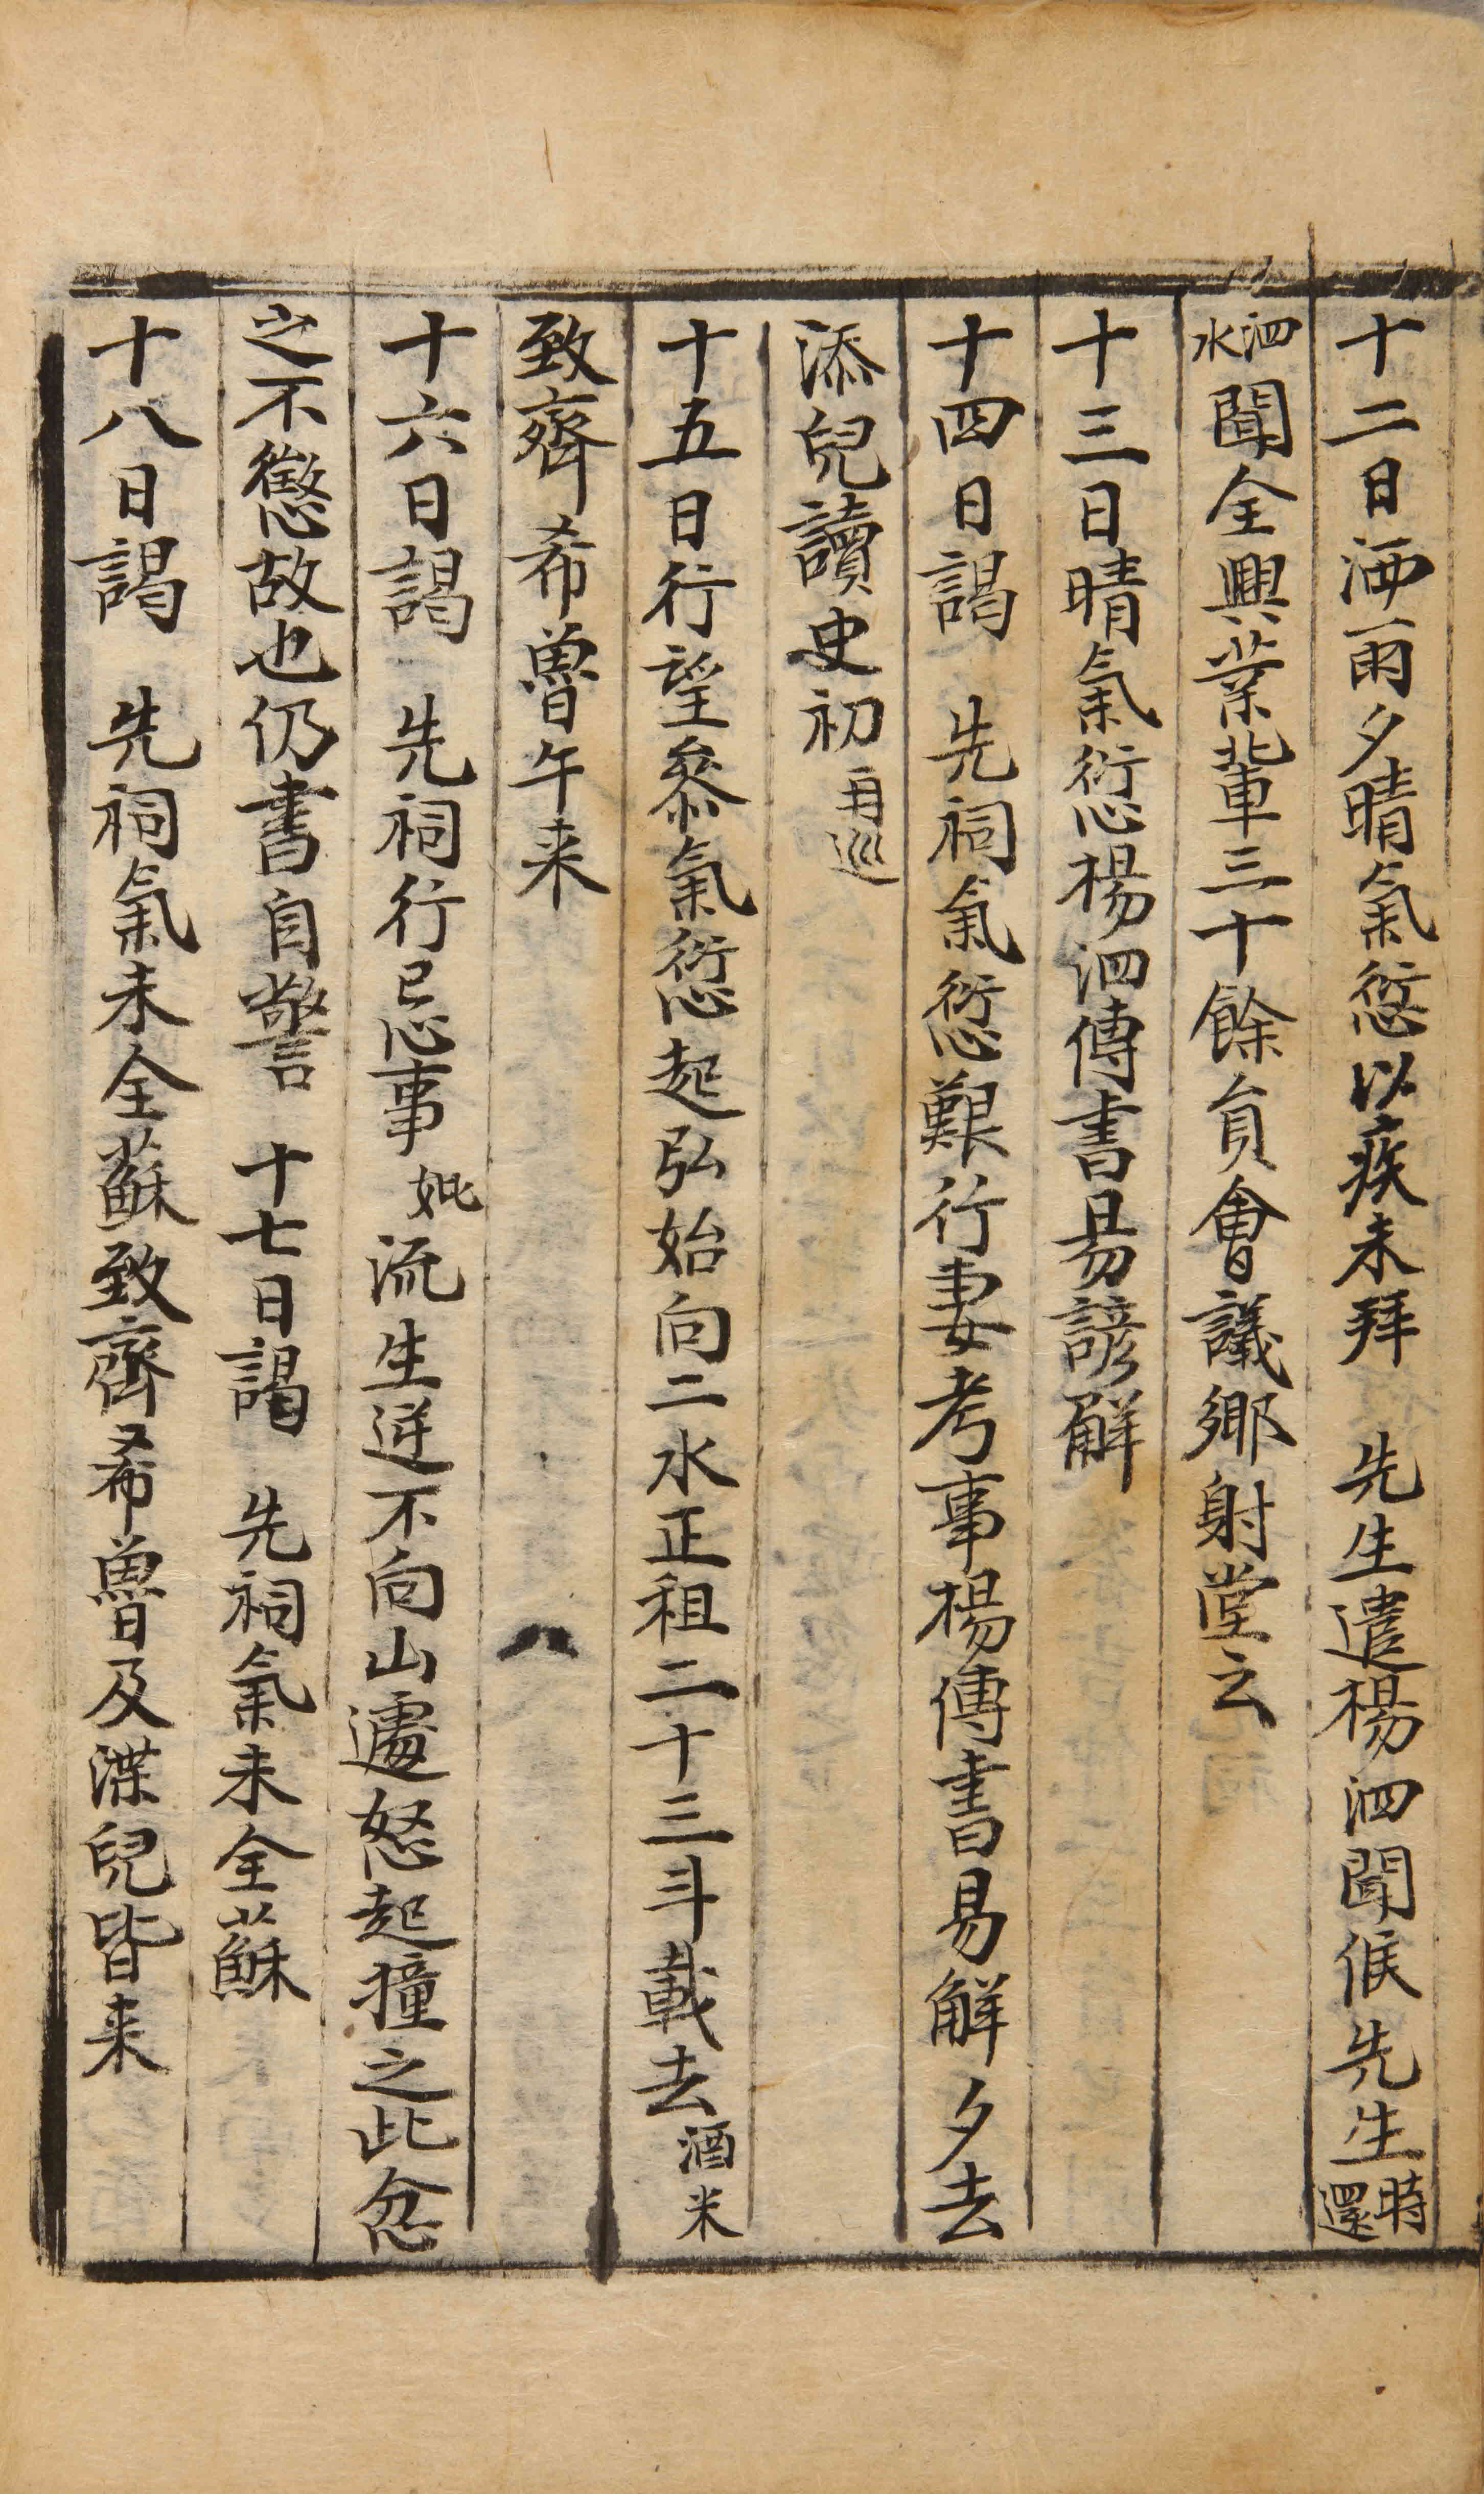 十二日洒雨夕晴氣愆以疾未拜　先生遣楊泗聞候先生時還
泗水聞全興業輩三十餘員會議鄉射堂云
十三日晴氣愆楊泗傳書易諺解
十四日謁　先祠氣愆艱行妻考事楊傳書易解夕去
添兒讀史初再巡
十五日行望參氣愆起弘始向二水正租二十三斗載去酒米
致齊希魯午来
十六日謁　先祠行忌事妣流生迸不向山遽怒起撞之此忿
之不懲故也仍書自警　十七日謁　先祠氣未全蘇
十八日謁　先祠氣未全蘇致齊希魯及渫兒皆来